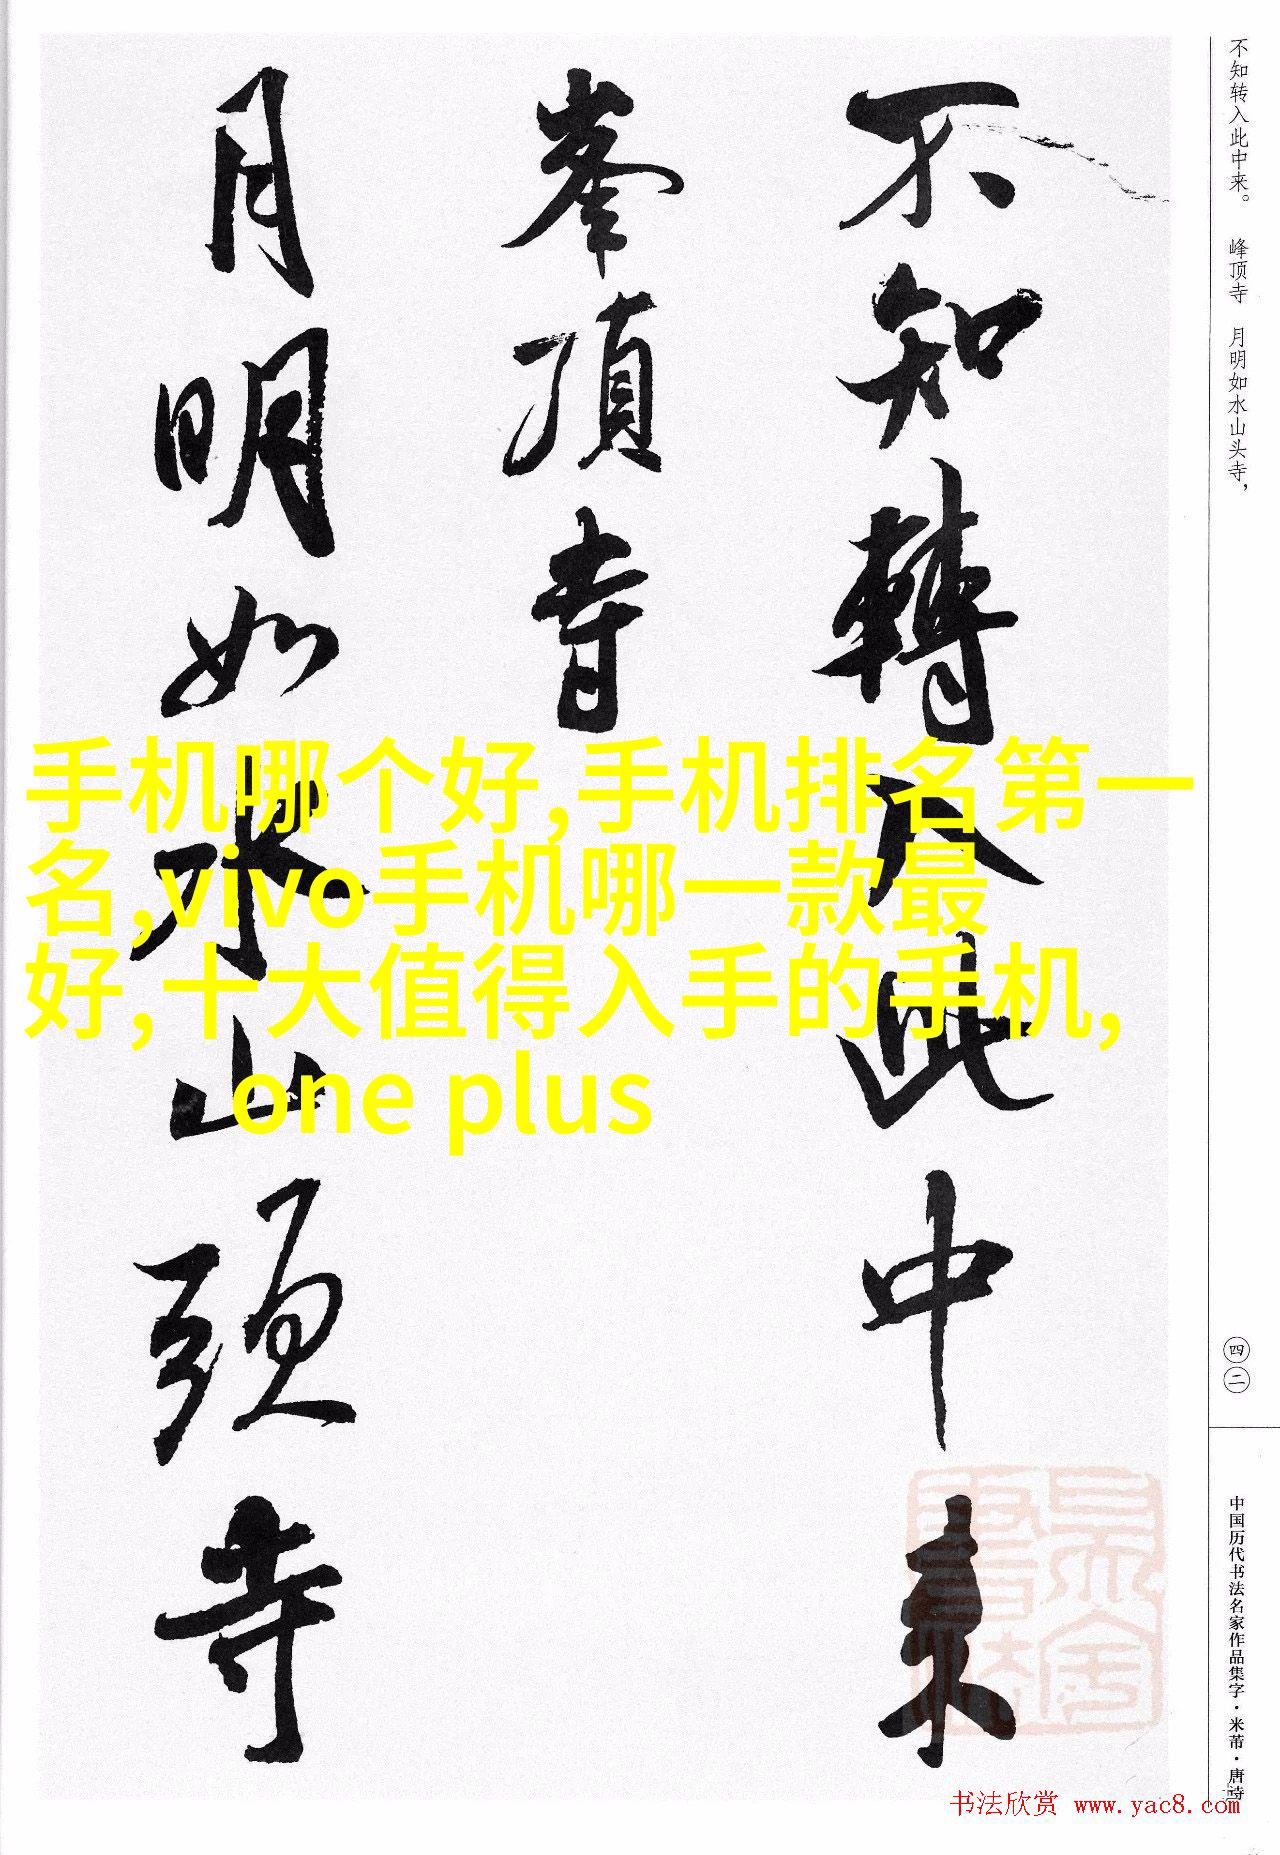 不知转入此中来。 峰顶寺 月明如水山头寺，
不知轉入此中来
峯頂寺
月明如水山頭寺
手机哪个好,手机排名第一
名,vivo手机哪一款最
好,十大值得入手的手机,
one plus
四二
中国历代书法名家作品集字·米芾·唐诗
书法欣赏 www.yac8.com